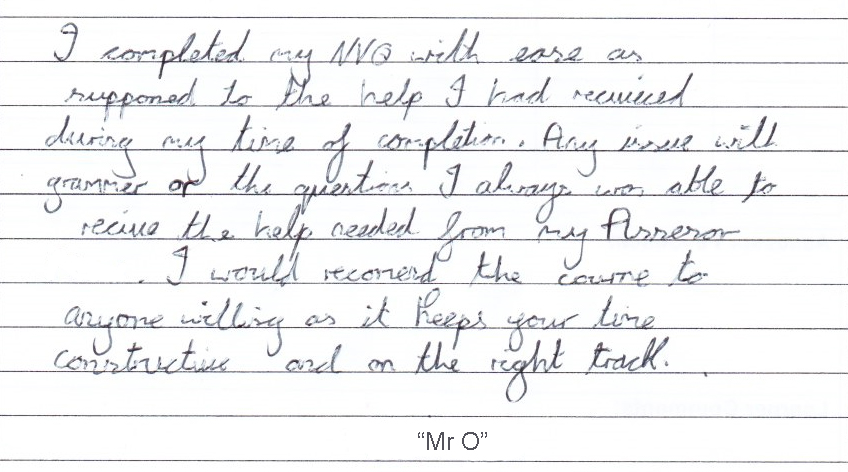 I completed my NVQ with ease as
supponed to the help I had recuieced
during my time of completion. Any issue with
grammer or the questions I always was able to
recive the help needed from my Assesor
. I would recomend the course to
anyone willing as it keeps your time
constructive and on the right track.
"Mr O"